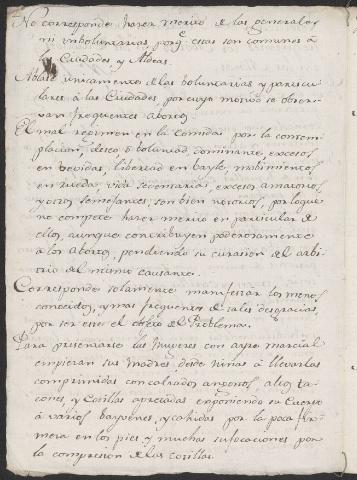 No corresponde haver merito de las generales
ni imboluntarias, porq.e esas son comunes à
las Ciudades y Aldeas.
Ablase unicamente de las boluntarias y particu
lares à las Ciudades, por cuyo motivo se obser
van frequentes abortos.
El mal regimen en la comida, por la contem
placion, deseo ò boluntad, dominante, excesos
en bevidas, libertad en bayle, mobimientos
en ruedas, vida sedentaria, excesos amatorios
y otros semejantes, son bien notorios, por lo que
no compete haver merito en particular de
ellos, aunque contribuyen poderosamente
a los abortos, pendiendo su curasion del arbi
trio del mismo causante.
Corresponde solamente manifestar los menos
conocidos, y mas frequentes de tales desgracias,
por ser este el obgeto del Problema.
Para presentarse las mugeres con ayre marcial
empiezan sus madres desde niñas à llevarlas
comprimidas con calzados angostos, altos ta
cones, y Cotillas apretadas exponiendo su Cuerpo
à varios bayvenes, y cahidas por la poca fir
mesa en los pies, y muchas sufocaciones por
la compresion de las cotillas.